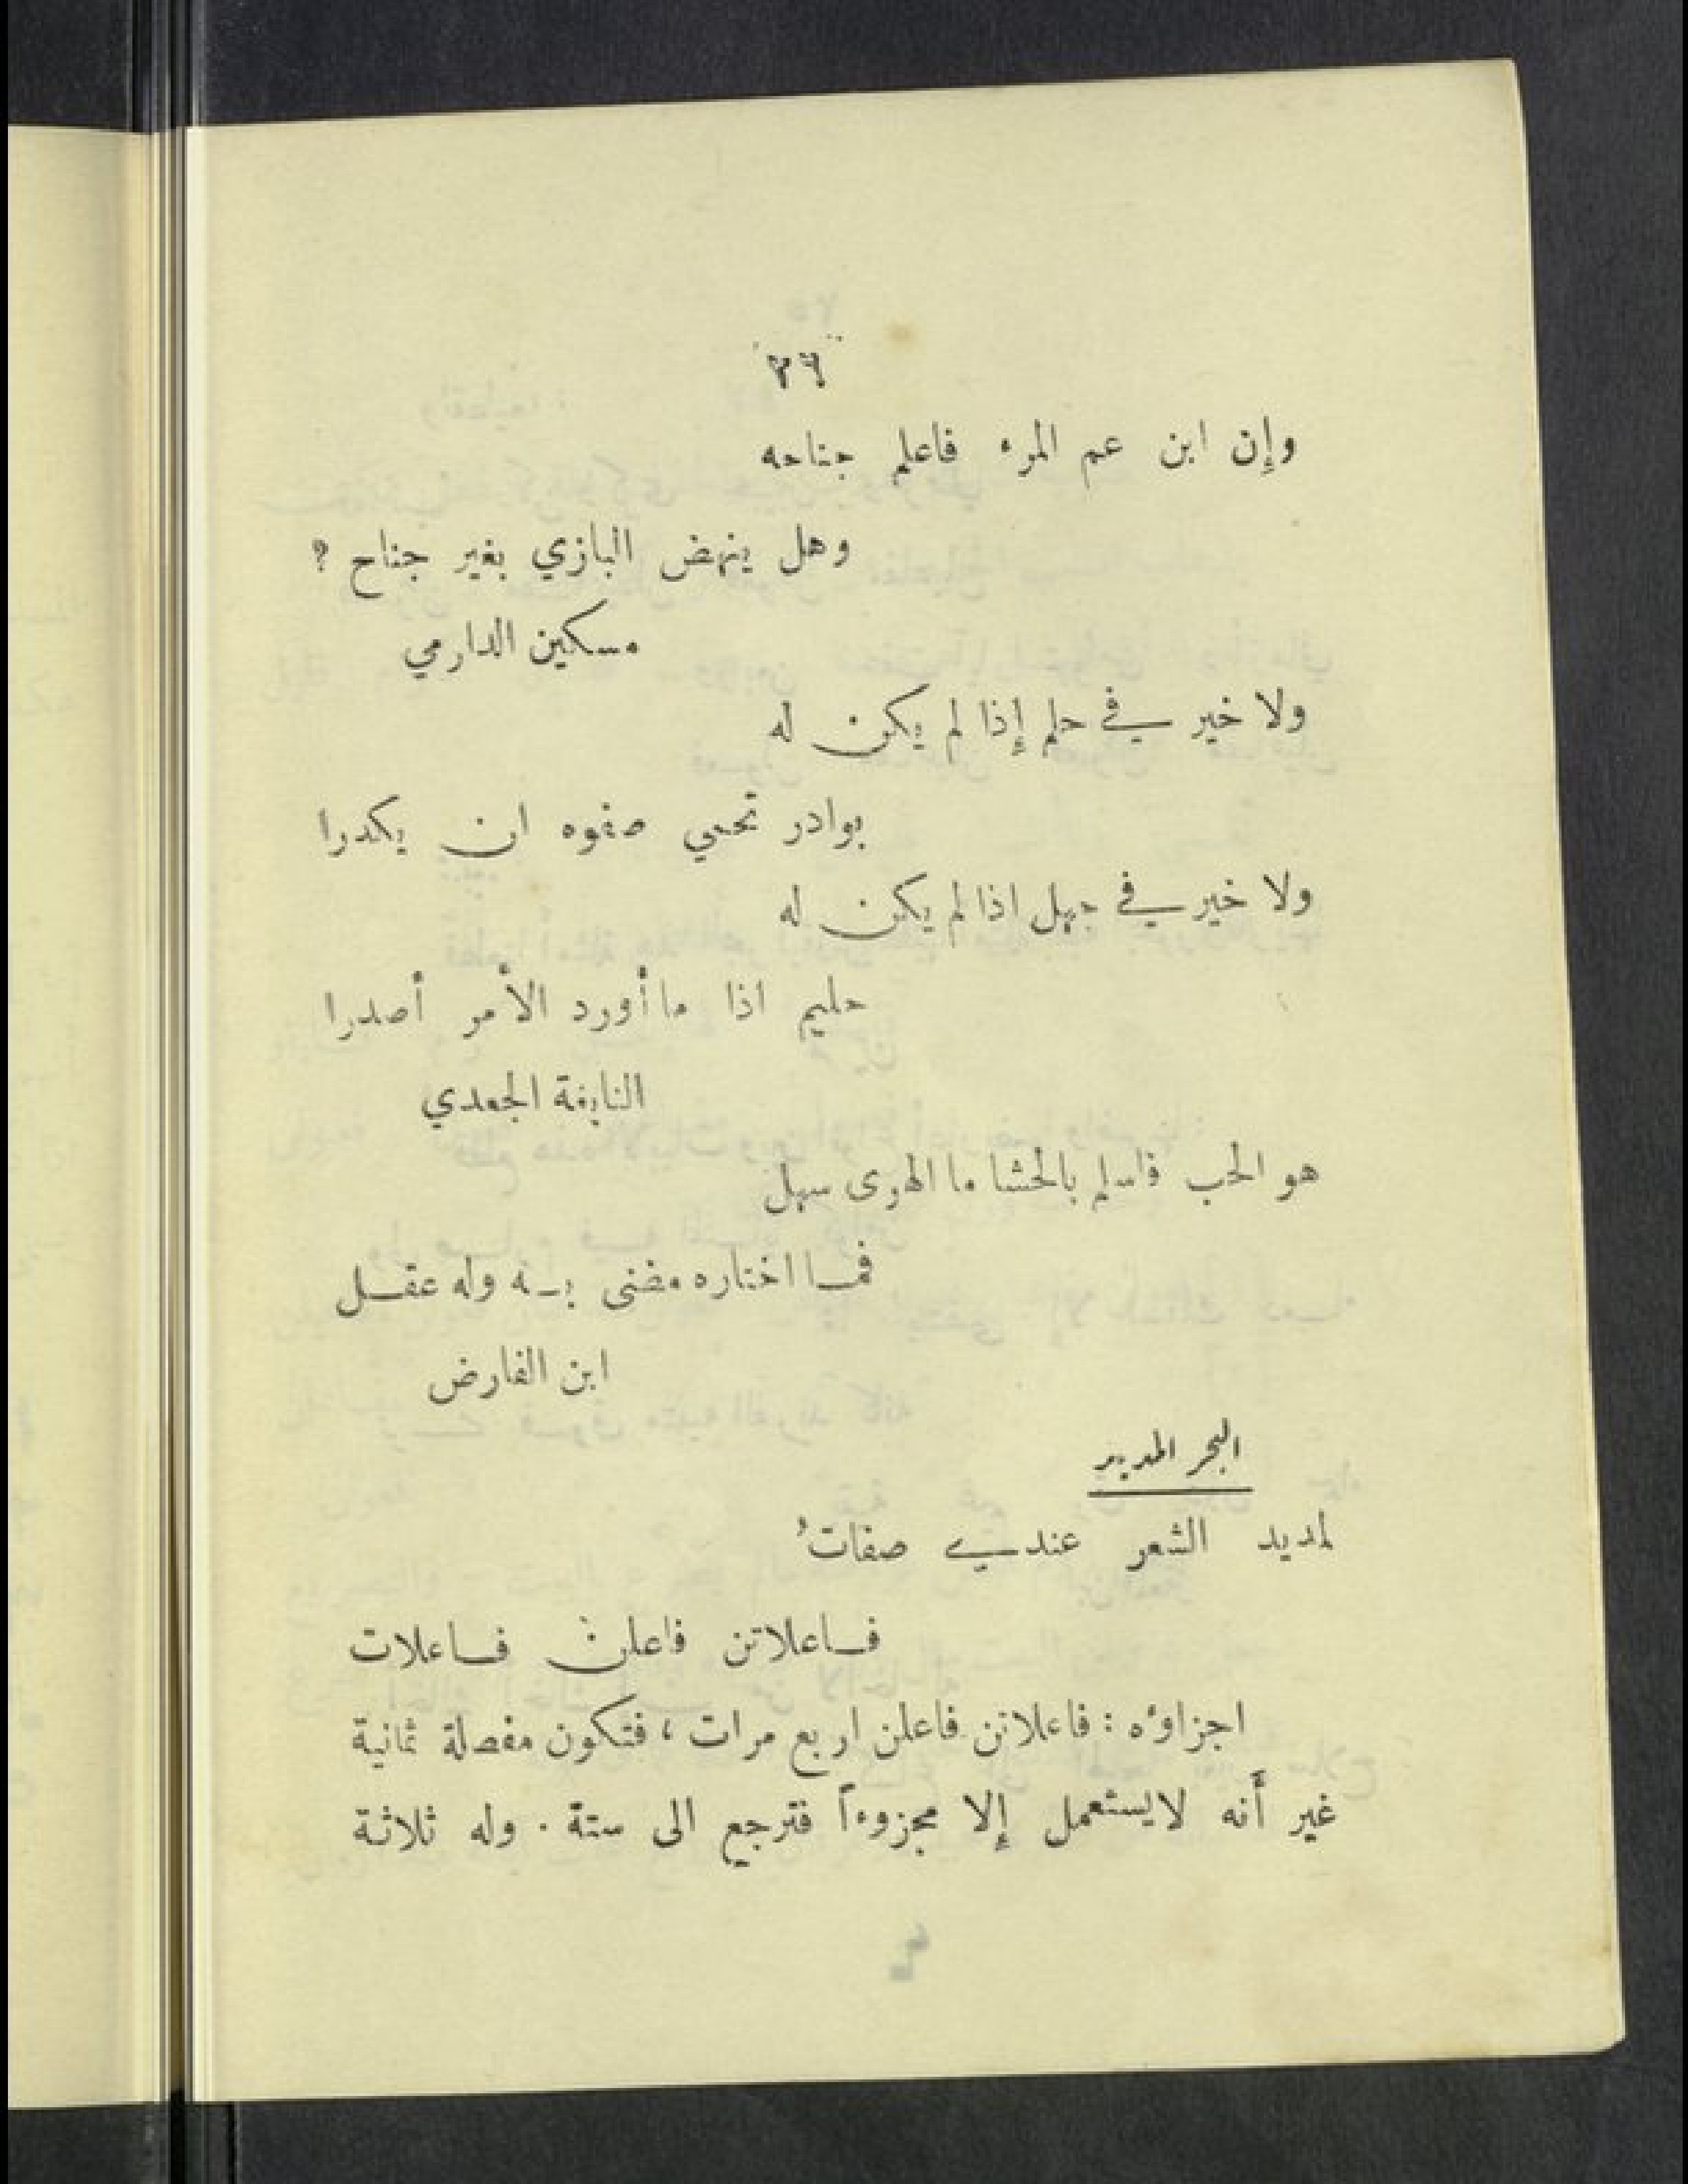 ٢٦
وإن ابن عم المرء فاعلم جناحه
وهل ينهض البازي بغير جناح ؟
مسكين الدارمي
ولا خير في حلم إذا لم يكن له
بوادر تحمي صفوه ان يكدرا
ولا خير في جهل اذا لم يكن له
حليم اذا ما أورد الأمر أصدرا
النابغة الجعدي
هو الحب فاسلم بالحشا ما الهوى سهل
فما اختاره مضنى به وله عقل
ابن الفارض
البحر المديد
لمديد الشعر عندي صفاتُ
فاعلاتن فاعلن فاعلات
اجزاؤه : فاعلاتن فاعلن اربع مرات ، فتكون مفصلة ثمانية
غير أنه لا يستعمل إلا مجزوءاً فترجع الى ستة . وله ثلاثة